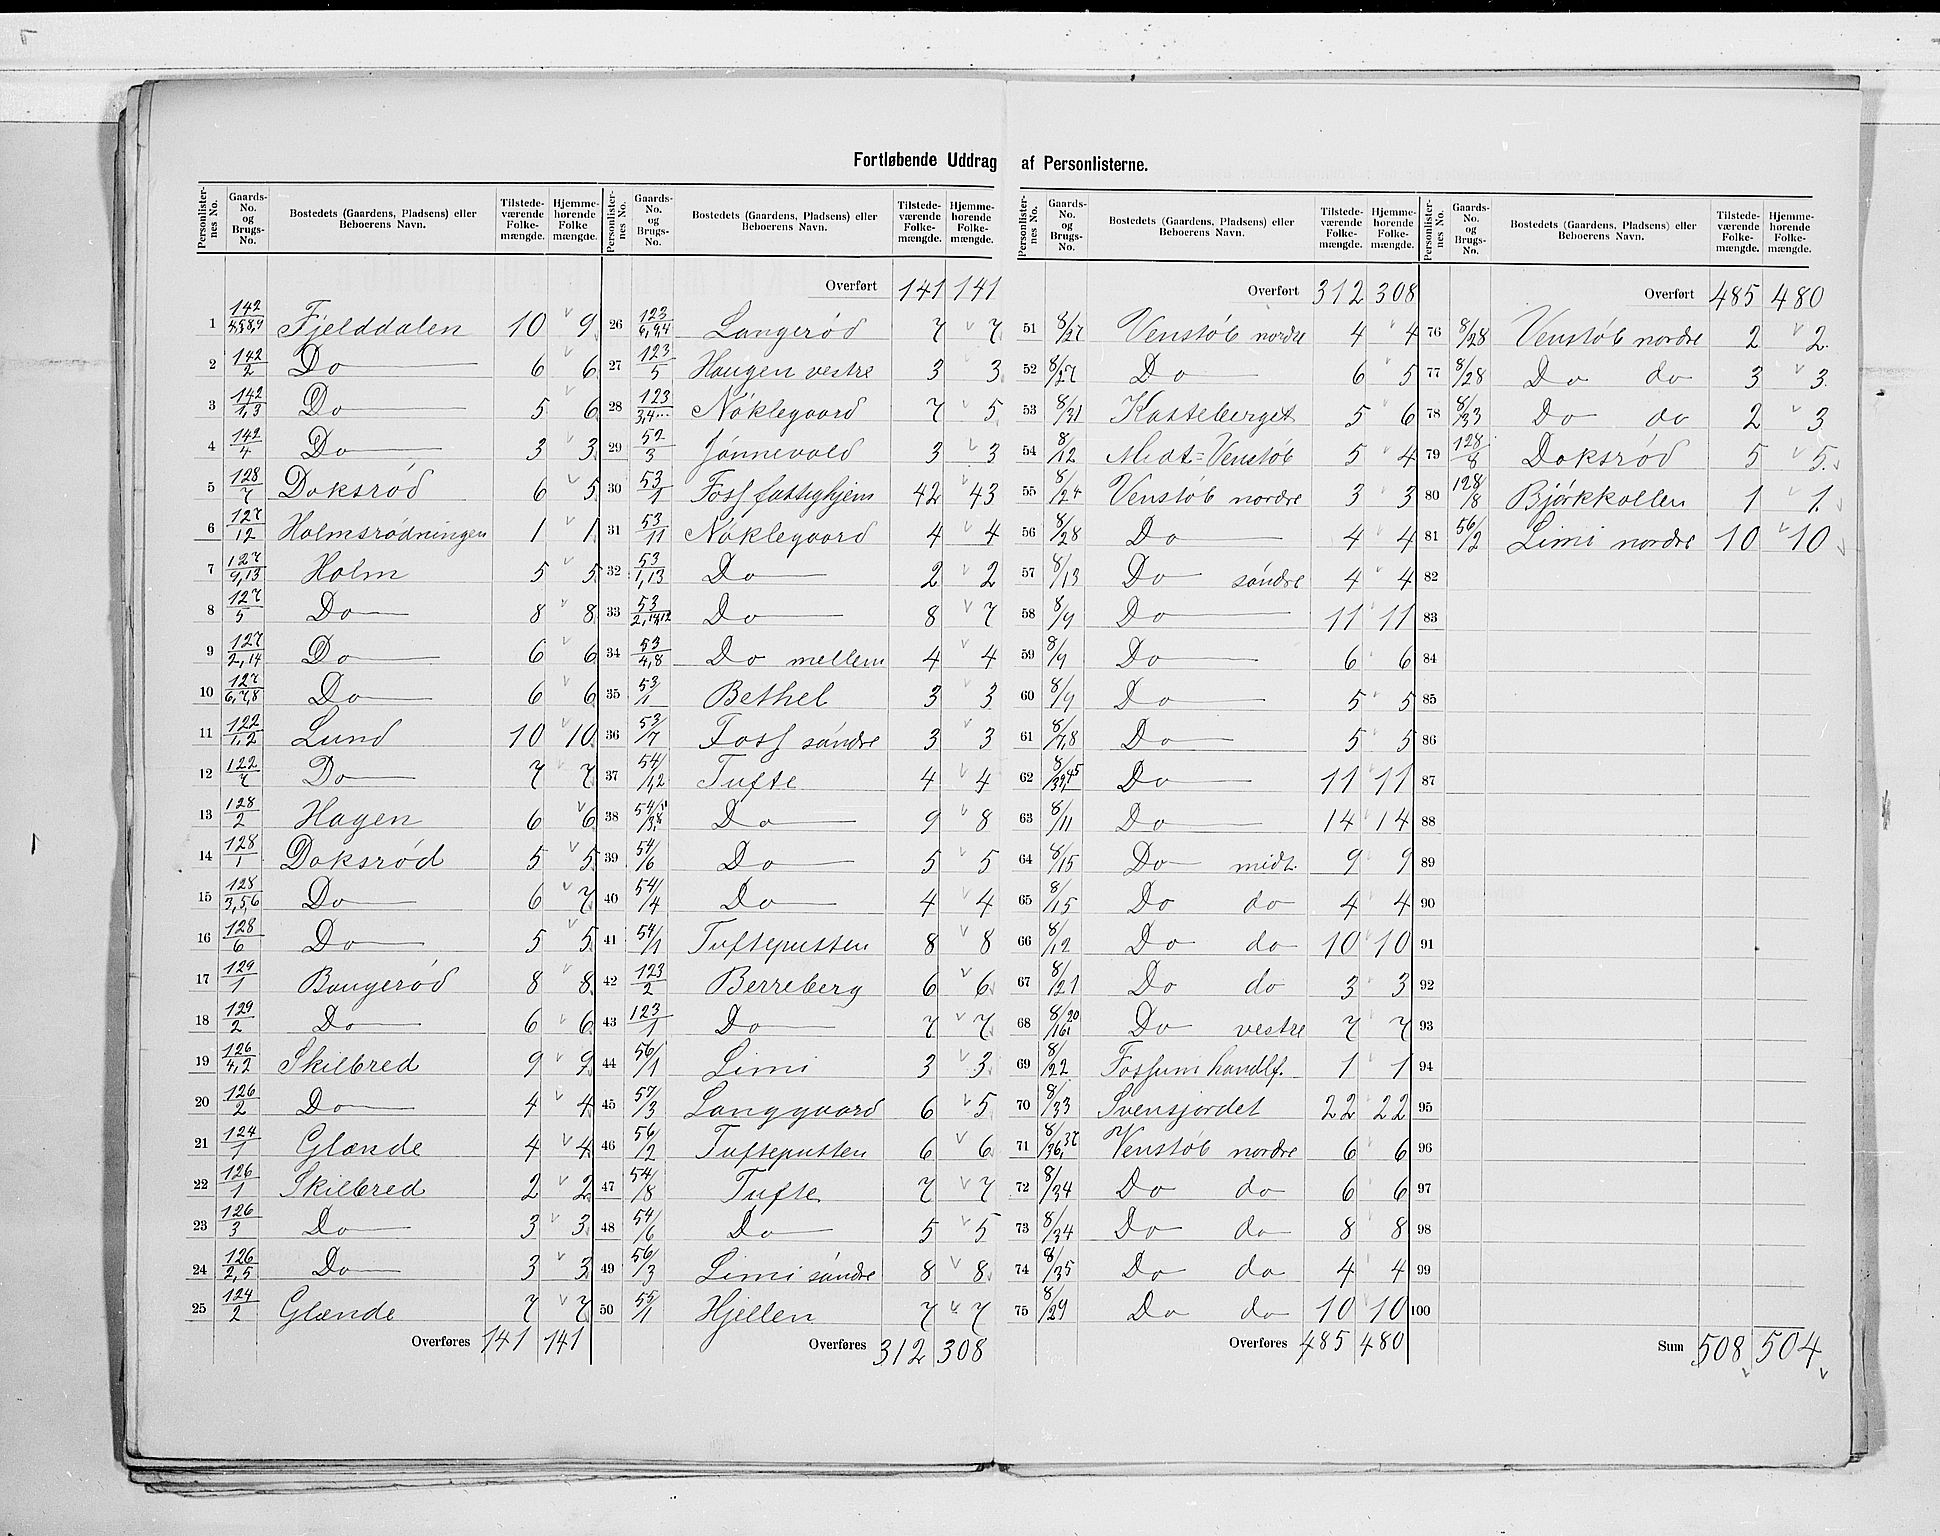 Fortløbende Uddrag af Personlisterne.
Personlisternes No. Gaards-No. og Brugs-No. Bostedets (Gaardens, Pladsens) eller Beboerens Navn. Tilstedeværende Folkemængde. Hjemmehørende Folkemængde.
1 142/4,5,8,9 Fjelddalen 10 9
2 142/2 Do 6 6
3 142/1,3 Do 5 6
4 142/4 Do 3 3
5 128/7 Doksrød 6 5
6 127/12 Holmsrødningen 1 1
7 127/9,13 Holm 5 5
8 127/5 Do 8 8
9 127/2,14 Do 6 6
10 127/6,7,8 Do 6 6
11 122/1,2 Lund 10 10
12 122/7 Do 7 7
13 128/2 Hagen 6 6
14 128/1 Doksrød 5 5
15 128/3,5,6 Do 6 7
16 128/6 Do 5 5
17 129/1 Baugerød 8 8
18 129/2 Do 6 6
19 126/4,2 Skilbred 9 9
20 126/2 Do 4 4
21 124/1 Glænde 4 4
22 126/1 Skilbred 2 2
23 126/3 Do 3 3
24 126/2,5 Do 3 3
25 124/2 Glænde 7 7
Overføres 141 141
Personlisternes No. Gaards-No. og Brugs-No. Bostedets (Gaardens, Pladsens) eller Beboerens Navn. Tilstedeværende Folkemængde. Hjemmehørende Folkemængde.
Overført 141 141
26 123/6,9,4 Langerød 7 7
27 123/5 Haugen vestre 3 3
28 123/3,4... Nöklegaard 7 5
29 52/3 Jönnevald 3 3
30 53/1 Foss fattighjem 42 43
31 53/11 Nöklegaard 4 4
32 53/1,13 Do 2 2
33 53 Do 8 7
34 53/4,8 Do mellem 4 4
35 53/1 Bethel 3 3
36 53/7 Foss söndre 3 3
37 54/1,2 Tufte 4 4
38 54 Do 9 8
39 54/6 Do 5 5
40 54/4 Do 4 4
41 54/1 Tufteputten 8 8
42 123/2 Berreberg 6 6
43 123/1 Do 7 7
44 56/1 Limi 3 3
45 57/3 Langgaard 6 5
46 56/2 Tufteputten 6 6
47 54/8 Tufte 7 7
48 54/6 Do 5 5
49 56/3 Limi söndre 8 8
50 55/1 Hjellen 7 7
Overføres 312 308
Personlisternes No. Gaards-No. og Brugs-No. Bostedets (Gaardens, Pladsens) eller Beboerens Navn. Tilstedeværende Folkemængde. Hjemmehørende Folkemængde.
Overført 312 308
51 8/27 Venstöb nordre 4 4
52 8/27 Do 6 5
53 8/31 Kasteberget 5 6
54 8/12 Midt=Venstöb 5 4
55 8/24 Venstöb nordre 3 3
56 8/28 Do 4 4
57 8/13 Do söndre 4 4
58 8/9 Do 11 11
59 8/9 Do 6 6
60 8/9 Do 5 5
61 8/7,8 Do 5 5
62 8 Do 11 11
63 8/11 Do 14 14
64 8/15 Do midt. 9 9
65 8/15 Do do 4 4
66 8/12 Do do 10 10
67 8/21 Do do 3 3
68 8/16,20 Do vestre 7 7
69 8/22 Fossum handlf. 1 1
70 8/33 Svensjordet 22 22
71 8/36,37 Venstöb nordre 6 6
72 8/34 Do do 6 6
73 8/34 Do do 8 8
74 8/35 Do do 4 4
75 8/29 Do do 10 10
Overføres 485 480
Personlisternes No. Gaards-No. og Brugs-No. Bostedets (Gaardens, Pladsens) eller Beboerens Navn. Tilstedeværende Folkemængde. Hjemmehørende Folkemængde.
Overført 485 480
76 8/28 Venstöb nordre 2 2
77 8/28 Do do 3 3
78 8/33 Do do 2 3
79 128/8 Doksrød 5 5
80 128/8 Björkkollen 1 1
81 56/2 Limi nordre 10 10
82
83
84
85
86
87
88
89
90
91
92
93
94
95
96
97
98
99
100
Sum 508 504